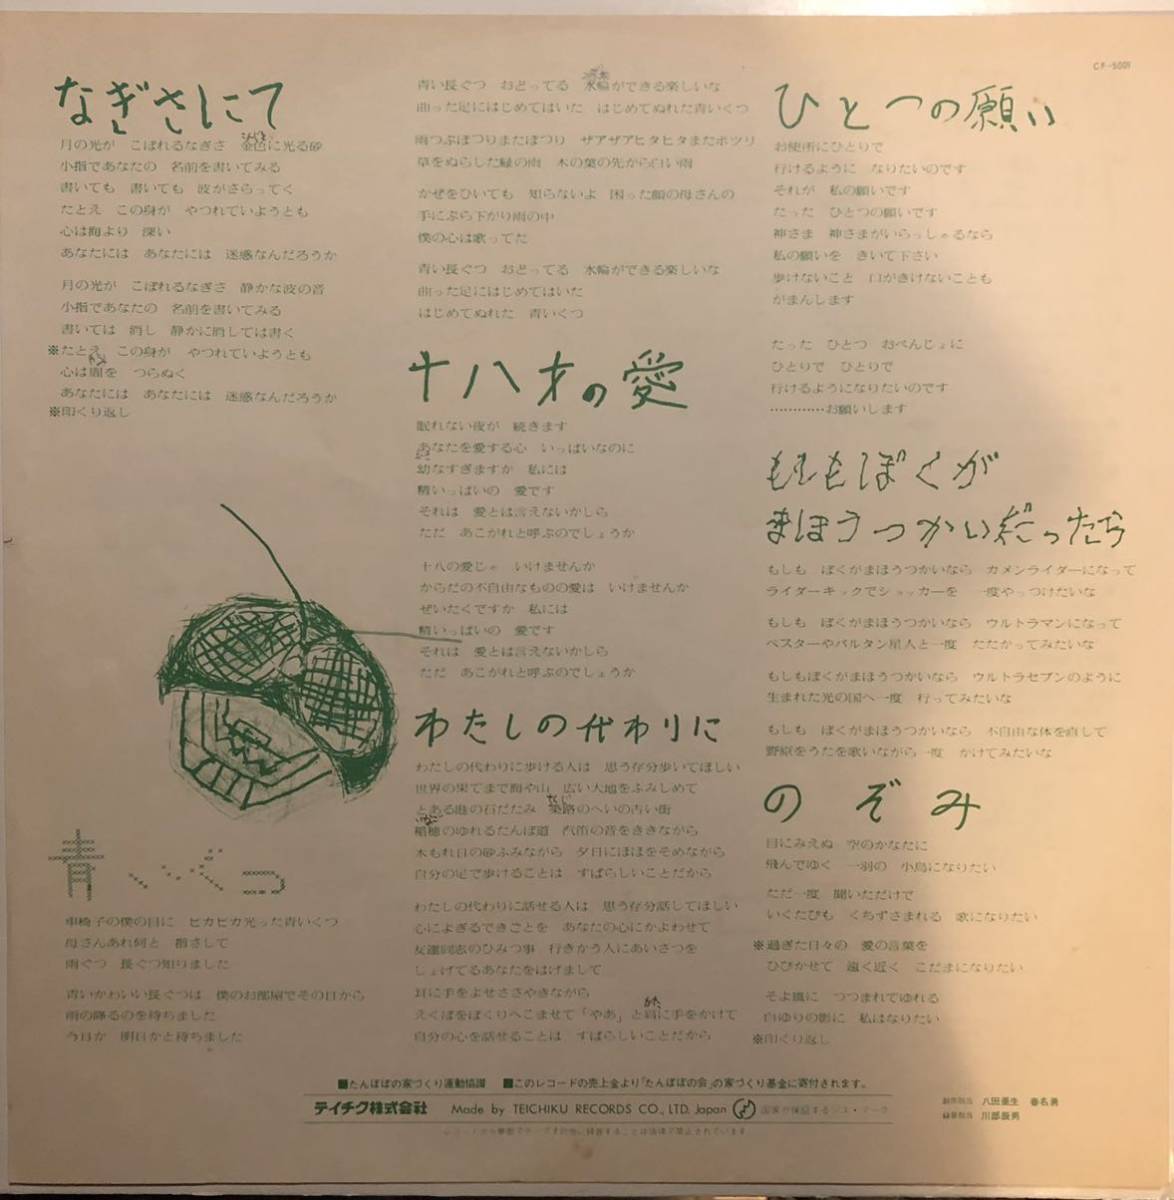 CF-5001
なぎさにて
月の光が こぼれるなぎさ 金色に光る砂
小指であなたの 名前を書いてみる
書いても 書いても 波がさらってく
たとえ この身が やつれていようとも
心は海より 深い
あなたには あなたには 迷惑なんだろうか
月の光が こぼれるなぎさ 静かな波の音
小指であなたの 名前を書いてみる
書いては 消し 静かに消しては書く
※たとえ この身が やつれていようとも
心は闇を つらぬく
あなたには あなたには 迷惑なんだろうか
※印くり返し
青いくつ
車椅子の僕の目に ピカピカ光った青いくつ
母さんあれ何と 指さして
雨ぐつ 長ぐつ知りました
青いかわいい長ぐつは 僕のお部屋でその日から
雨の降るのを待ちました
今日か 明日かと待ちました
青い長ぐつ おどってる 水輪ができる楽しいな
曲った足にはじめてはいた はじめてぬれた青いくつ
雨つぶぽつりまたぽつり ザアザアヒタヒタまたポツリ
草をぬらした緑の雨 木の葉の先から白い雨
かぜをひいても 知らないよ 困った顔の母さんの
手にぶら下がり雨の中
僕の心は歌ってた
青い長ぐつ おどってる 水輪ができる楽しいな
曲った足にはじめてはいた
はじめてぬれた 青いくつ
十八才の愛
眠れない夜が 続きます
あなたを愛する心 いっぱいなのに
幼なすぎますか 私には
精いっぱいの 愛です
それは 愛とは言えないかしら
ただ あこがれと呼ぶのでしょうか
十八の愛じゃ いけませんか
からだの不自由なものの愛は いけませんか
ぜいたくですか 私には
精いっぱいの 愛です
それは 愛とは言えないかしら
ただ あこがれと呼ぶのでしょうか
わたしの代わりに
わたしの代わりに歩ける人は 思う存分歩いてほしい
世界の果てまで海や山 広い大地をふみしめて
とある港の石だたみ 築路のへいの古い街
稲穂のゆれるたんぼ道 汽笛の音をききながら
木もれ日の砂ふみながら 夕日にほほをそめながら
自分の足で歩けることは すばらしいことだから
わたしの代わりに話せる人は 思う存分話してほしい
心によぎるできごとを あなたの心にかよわせて
友達同志のひみつ事 行きかう人にあいさつを
しょげてるあなたをはげまして
耳に手をよせささやきながら
えくぼをぽくりへこませて「やあ」と肩に手をかけて
自分の心を話せることは すばらしいことだから
ひとつの願い
お便所にひとりで
行けるように なりたいのです
それが 私の願いです
たった ひとつの願いです
神さま 神さまがいらっしゃるなら
私の願いを きいて下さい
歩けないこと 口がきけないことも
がまんします
たった ひとつ おべんじょに
ひとりで ひとりで
行けるようになりたいのです
…………お願いします
もしもぼくが
まほうつかいだったら
もしも ぼくがまほうつかいなら カメンライダーになって
ライダーキックでショッカーを 一度やっつけたいな
もしも ぼくがまほうつかいなら ウルトラマンになって
ベスターやバルタン星人と一度 たたかってみたいな
もしもぼくがまほうつかいなら ウルトラセブンのように
生まれた光の国へ一度 行ってみたいな
もしも ぼくがまほうつかいなら 不自由な体を直して
野原をうたを歌いながら一度 かけてみたいな
のぞみ
目にみえぬ 空のかなたに
飛んでゆく 一羽の 小鳥になりたい
ただ一度 聞いただけで
いくたびも くちずさまれる 歌になりたい
※過ぎた日々の 愛の言葉を
ひびかせて 遠く近く こだまになりたい
そよ風に つつまれてゆれる
白ゆりの影に 私はなりたい
※印くり返し
■たんぽぽの家づくり運動協讃 ■このレコードの売上金より「たんぽぽの会」の家づくり基金に寄付されます。
テイチク株式会社 Made by TEICHIKU RECORDS CO., LTD. Japan
八田亜生 春名勇
川部辰男